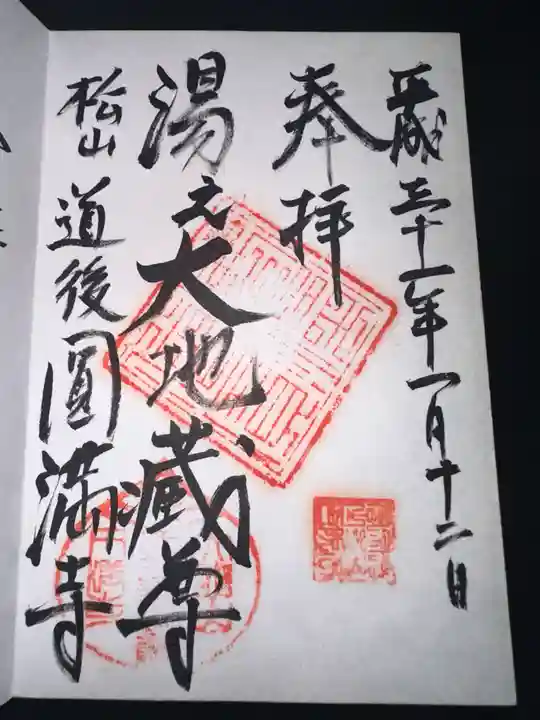 平成三十一年一月十二日
奉拝
湯之大地蔵尊
松山道後圓満寺